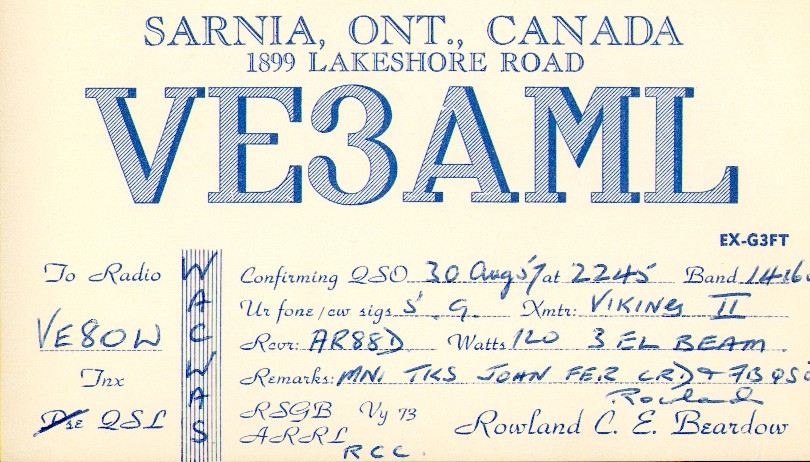 SARNIA, ONT., CANADA
1899 LAKESHORE ROAD
VE3AML
EX-G3FT
To Radio
VE8OW
Tnx
Pse QSL
WAC WAS
Confirming QSO 30 Aug 57 at 2245 Band 14
Ur fone/cw sigs 5 9 Xmtr: VIKING II
Rcvr: AR88D Watts 120 3 EL BEAM.
Remarks: MNI TKS JOHN FER CRD + FB QSO
Rowland
RSGB Vy 73
ARRL
RCC.
Rowland C. E. Beardow